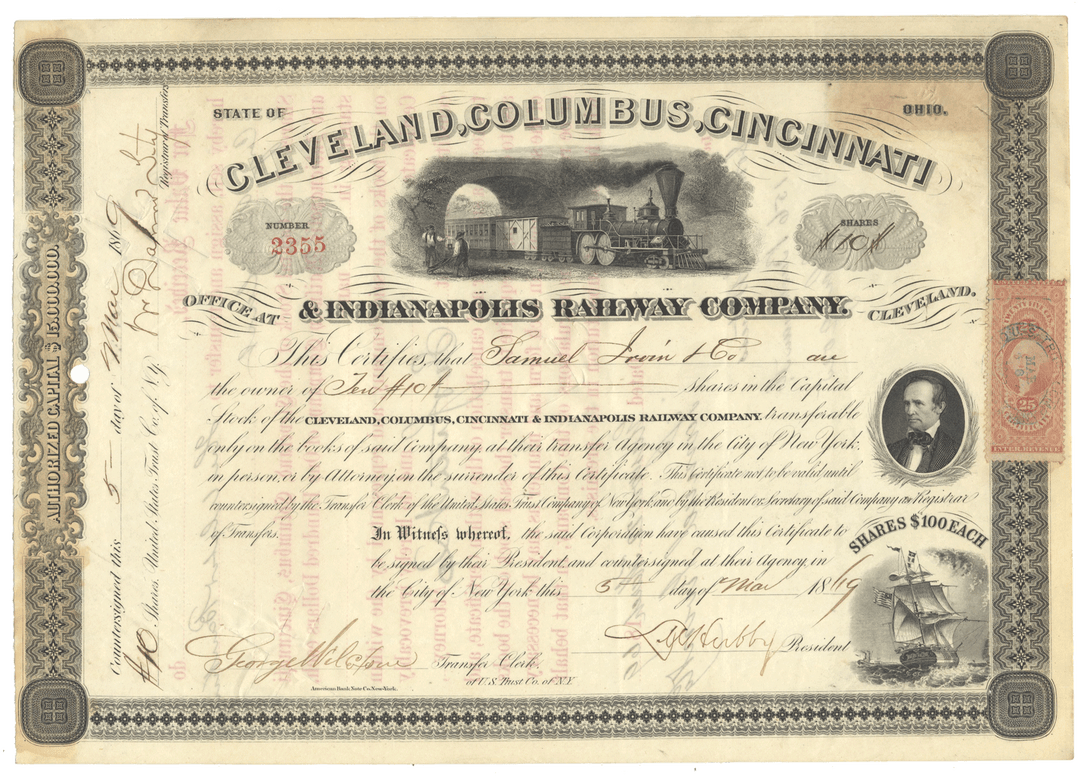 STATE OF OHIO.
CLEVELAND, COLUMBUS, CINCINNATI
NUMBER
2355
SHARES
#10#
OFFICE AT & INDIANAPOLIS RAILWAY COMPANY. CLEVELAND.
This Certifies, that Samuel Irvin & Co are
the owner of Ten #10# shares in the Capital
Stock of the CLEVELAND, COLUMBUS, CINCINNATI & INDIANAPOLIS RAILWAY COMPANY, transferable
only on the books of said Company, at their transfer Agency in the City of New York,
in person, or by Attorney, on the surrender of this Certificate. This Certificate not to be valid until
countersigned by the Transfer Clerk of the United States Trust Company of New York, and by the President or Secretary of said Company as Registrar
of Transfers.
In Witness whereof, the said Corporation have caused this Certificate to
be signed by their President, and countersigned at their Agency, in
the City of New York this 5th day of Mar 1869
President
George Transfer Clerk,
of U.S. Trust Co. of N.Y.
American Bank Note Co. New York.
SHARES $100 EACH
25
INTER. REVENUE
AUTHORIZED CAPITAL $15,000,000.
Countersigned this 5 day of Mar 1869
#10 Shares, United States Trust Co. of N.Y.
Registrar of Transfers